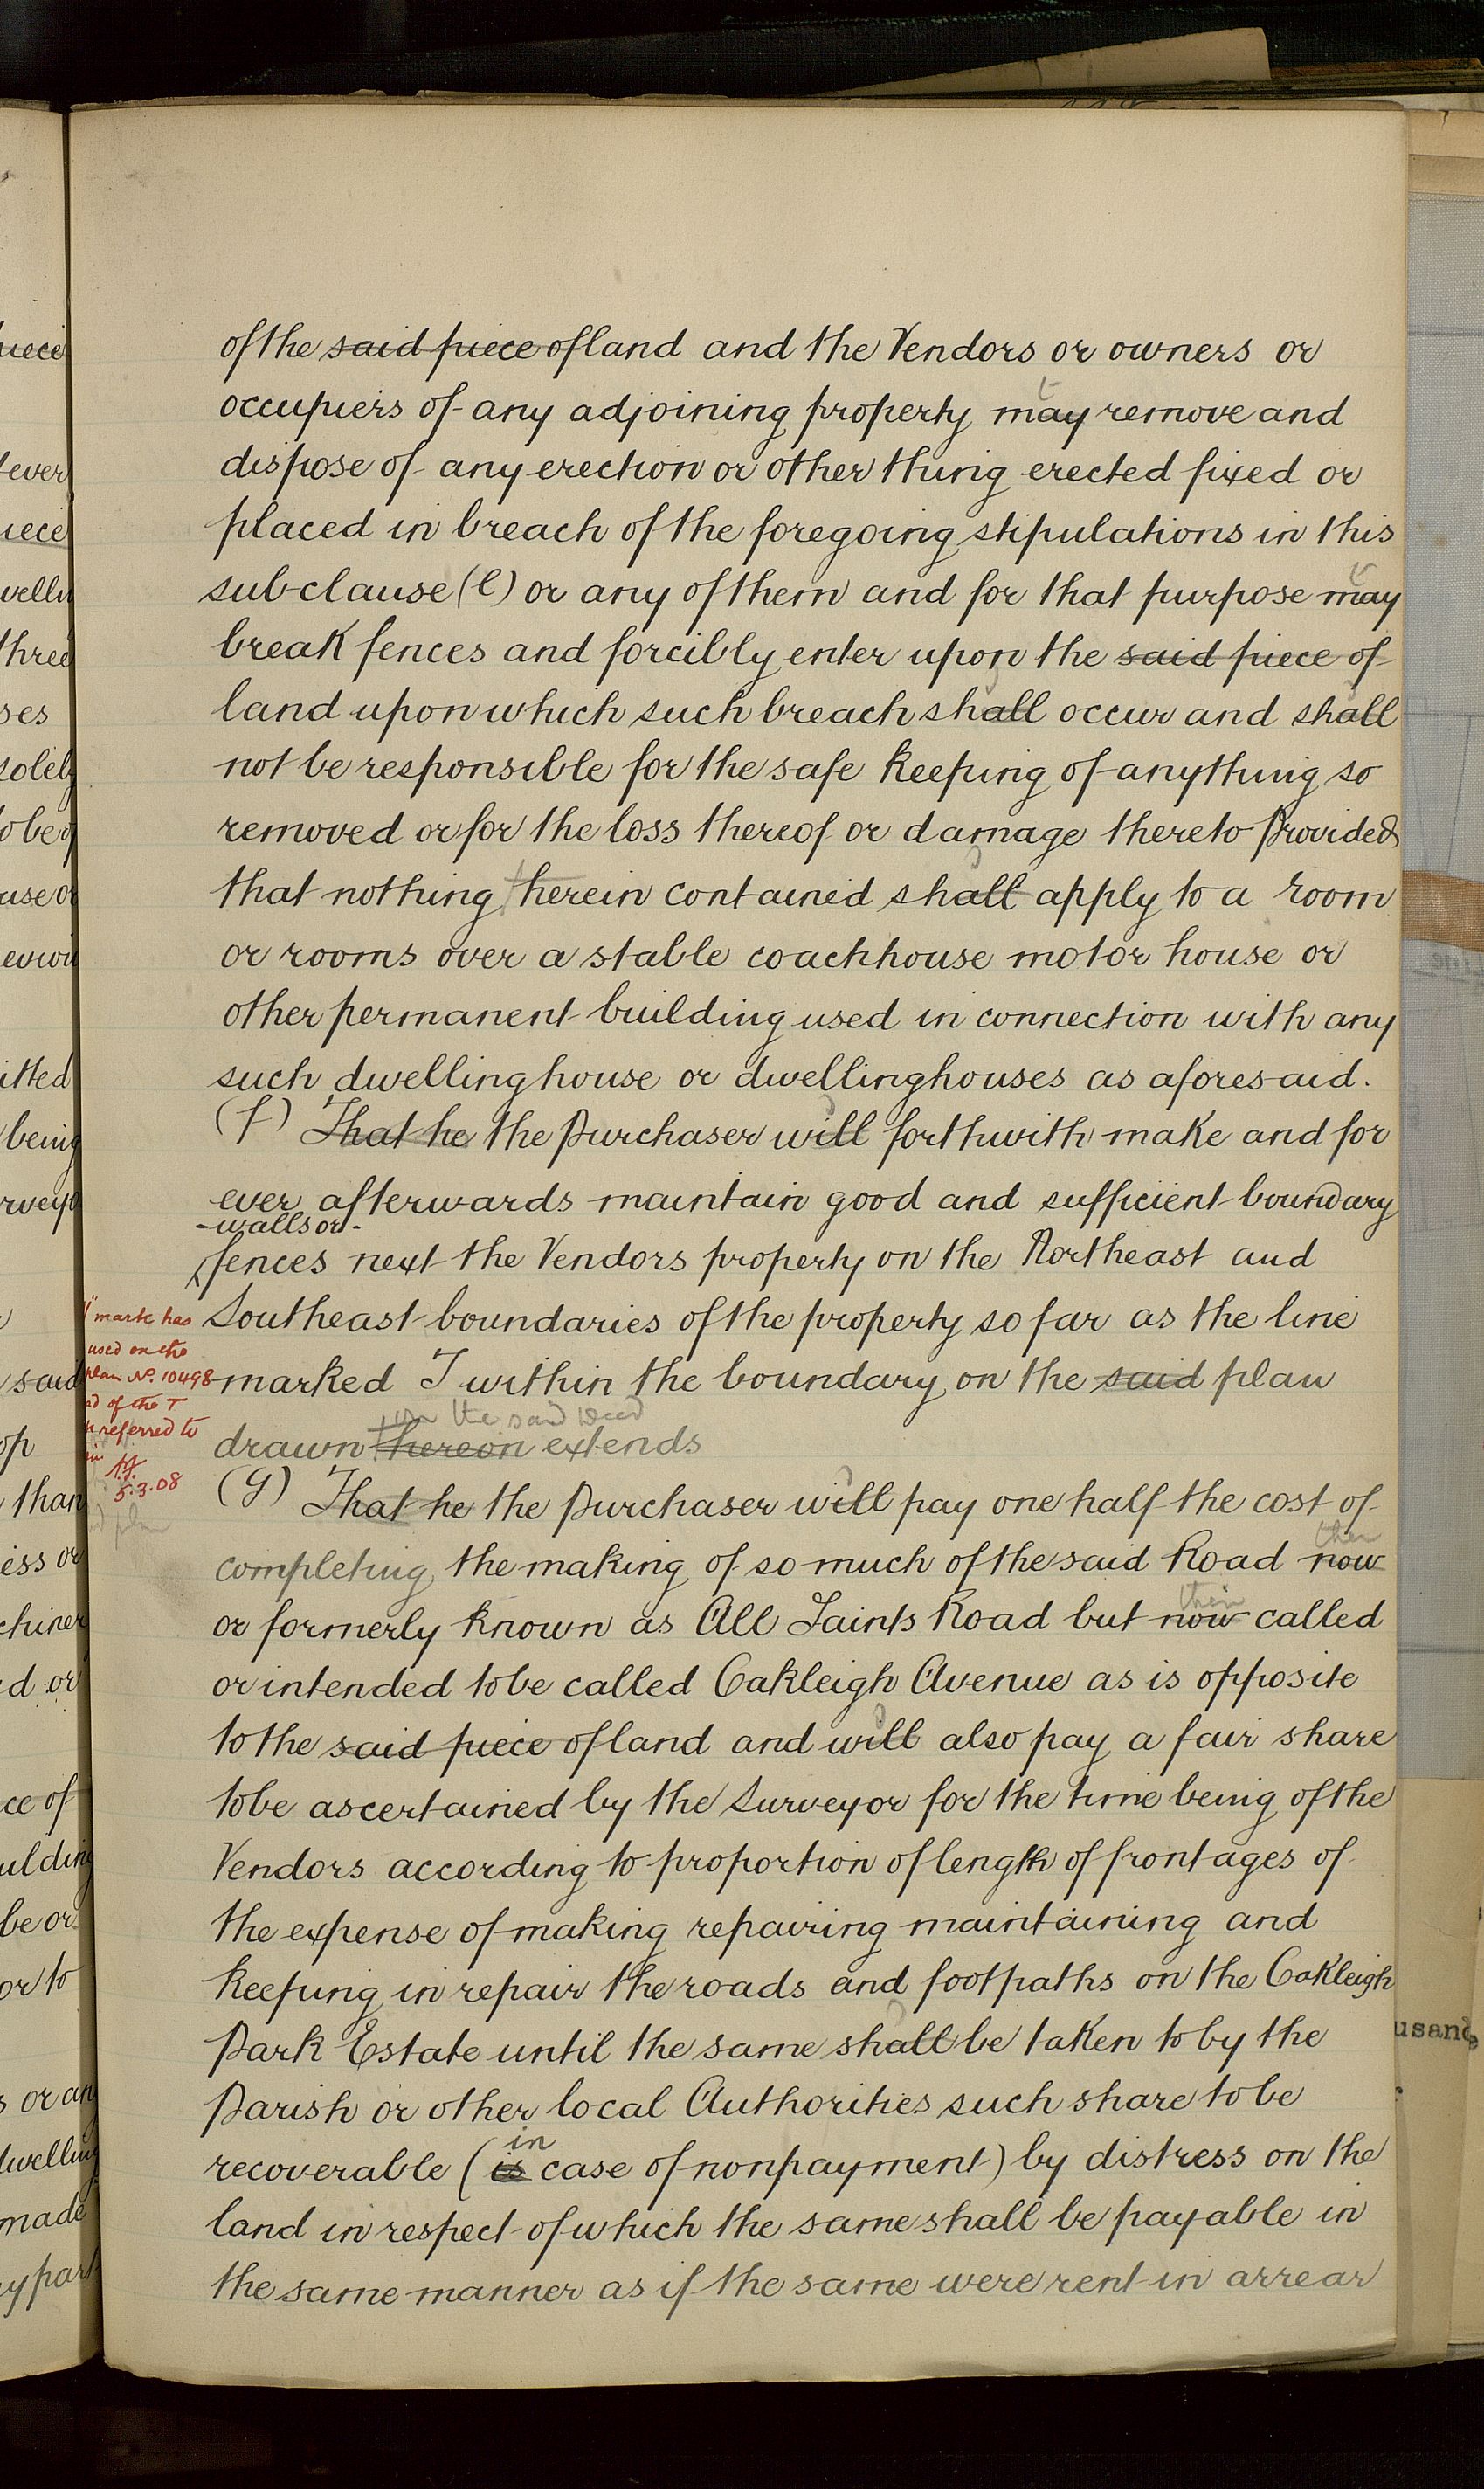 of the said piece of land and the Vendors or owners or
occupiers of any adjoining property may remove and
dispose of any erection or other thing erected fixed or
placed in breach of the foregoing stipulations in this
subclause (e) or any of them and for that purpose may
break fences and forcibly enter upon the said piece of
land upon which such breach shall occur and shall
not be responsible for the safe keeping of anything so
removed or for the loss thereof or damage thereto Provided
that nothing herein contained shall apply to a room
or rooms over a stable coachhouse motor house or
other permanent building used in connection with any
such dwellinghouse or dwellinghouses as aforesaid.
(f) That he the Purchaser will forthwith make and for
ever afterwards maintain good and sufficient boundary
-walls or-
fences next the Vendors property on the Northeast and
Southeast boundaries of the property so far as the line
marked T within the boundary on the said plan
on the said Deed
drawn thereon extends
(g) That he the Purchaser will pay one half the cost of
then
completing the making of so much of the said Road now
then
or formerly known as All Saints Road but now called
or intended to be called Oakleigh Avenue as is opposite
to the said piece of land and will also pay a fair share
to be ascertained by the Surveyor for the time being of the
Vendors according to proportion of length of frontages of
the expense of making repairing maintaining and
keeping in repair the roads and footpaths on the Oakleigh
Park Estate until the same shall be taken to by the
Parish or other local Authorities such share to be
in
recoverable (is case of nonpayment) by distress on the
land in respect of which the same shall be payable in
the same manner as if the same were rent in arrear
mark has
used on the
plan No. 10498
of the T
referred to
5.3.08
plan